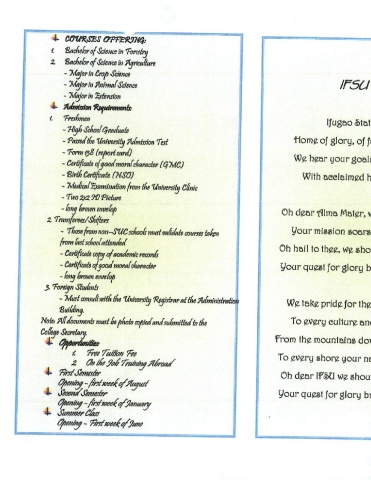 COURSES OFFERING:
1. Bachelor of Science in Forestry
2. Bachelor of Science in Agriculture
- Major in Crop Science
- Major in Animal Science
- Major in Extension
Admission Requirements
1. Freshmen
- High School Graduate
- Passed the University Admission Test
- Form 138 (report card)
- Certificate of good moral character (GMC)
- Birth Certificate (NSO)
- Medical Examination from the University Clinic
- Two 2x2 ID Picture
- long brown envelop
2. Transferees/Shifters
- Those from non-SUC schools must validate courses taken
from last school attended
- Certificate copy of academic records
- Certificate of good moral character
- long brown envelop
3. Foreign Students
- Must consult with the University Registrar at the Administration
Building.
Note: All documents must be photo copied and submitted to the
College Secretary.
Opportunities:
1. Free Tuition Fee
2. On the Job Training Abroad
First Semester
Opening - first week of August
Second Semester
Opening - first week of January
Summer Class
Opening - First week of June
IFSU
Ifugao Stat
Home of glory, of f
We hear your goal
With acclaimed h
Oh dear Alma Mater, w
Your mission soars
Oh hail to thee, we sho
Your quest for glory b
We take pride for the
To every culture an
From the mountains dow
To every shore your na
Oh dear IFSU we shou
Your quest for glory br